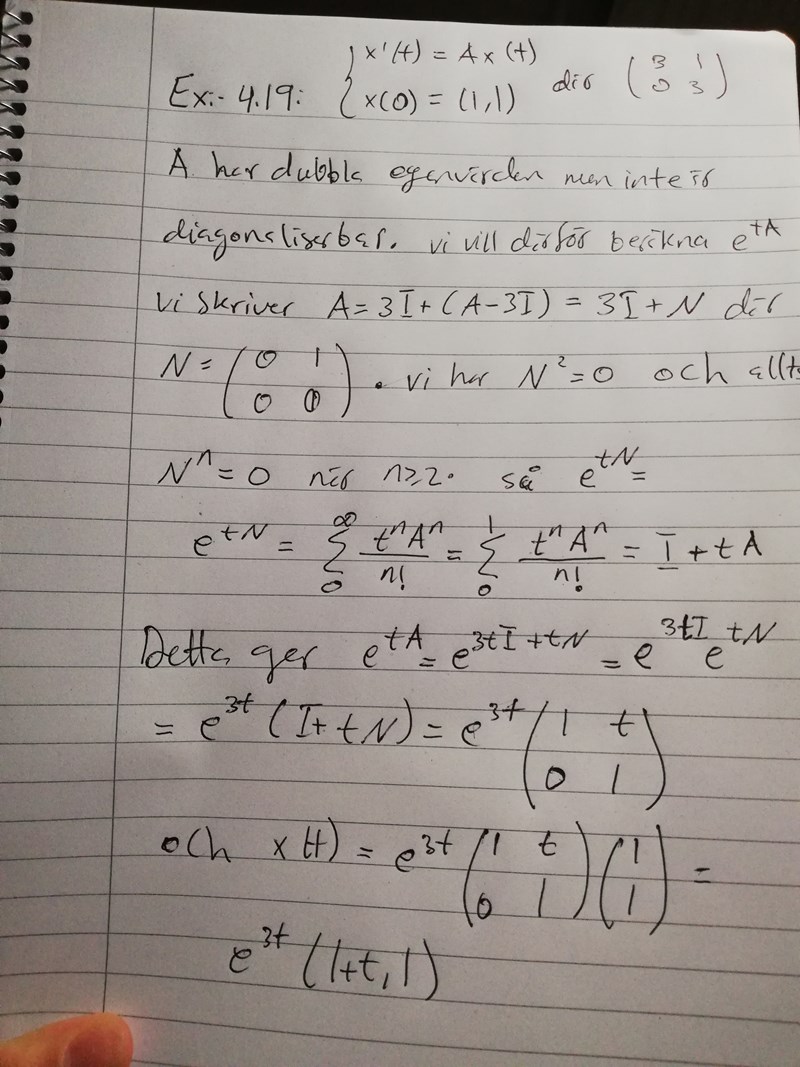 Ex:- 4.19: { x'(t) = Ax(t) x(0) = (1,1) där (3 1 0 3)
A har dubbla egenvärden men inte är
diagonaliserbar. vi vill därför beräkna e^tA
vi skriver A = 3I + (A-3I) = 3I + N där
N = (0 1 0 0) . vi har N² = 0 och allts
N^n = 0 när n≥2. så e^tN =
e^tN = ∞ Σ 0 t^n A^n / n! = 1 Σ 0 t^n A^n / n! = I + tA
Detta ger e^tA = e^3tI + tN = e^3tI e^tN
= e^3t (I + tN) = e^3t (1 t 0 1)
och x(t) = e^3t (1 t 0 1) (1 1) =
e^3t (1+t, 1)